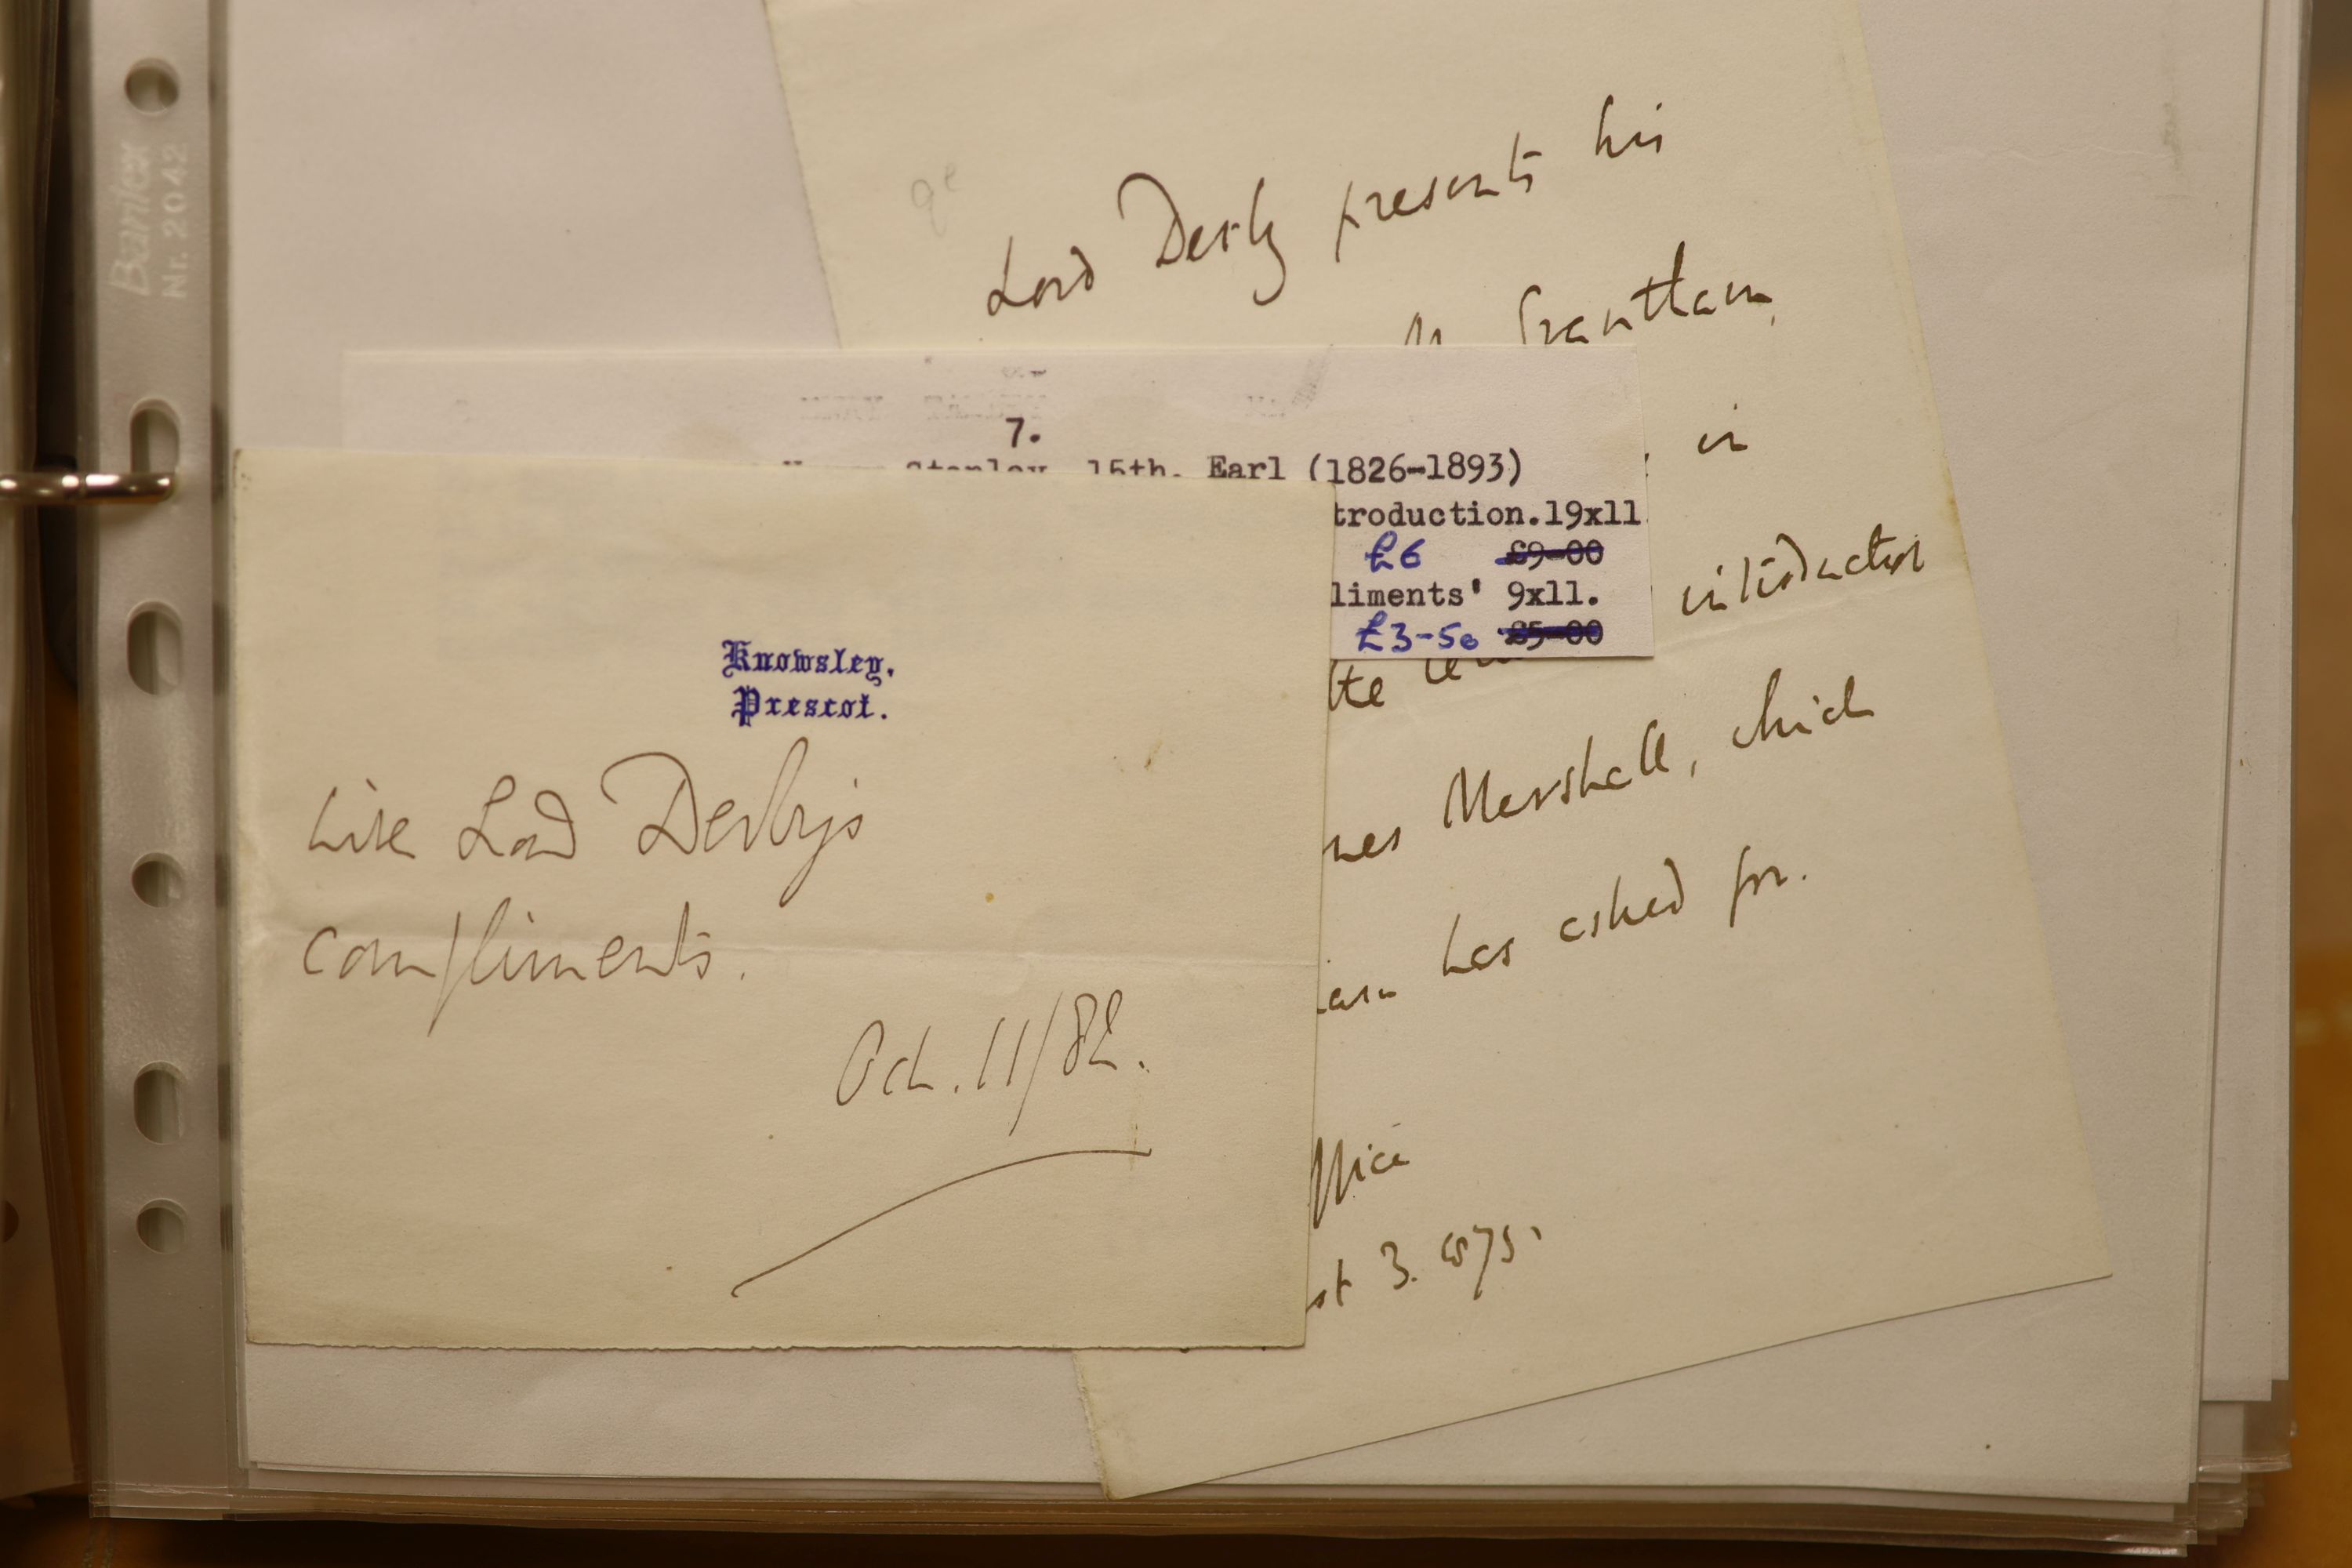 Bantex
Nr. 2042
Lord Derby presents his
Mr Grantham,
in
introduction
the
Marshall, which
has asked for.
ffice
st 3. 1875.
7.
Stanley, 15th. Earl (1826-1893)
troduction.19x11
£6 £9-00
liments' 9x11.
£3-50 £5-00
Knowsley,
Prescot.
With Lord Derby's
compliments.
Oct. 11/82.